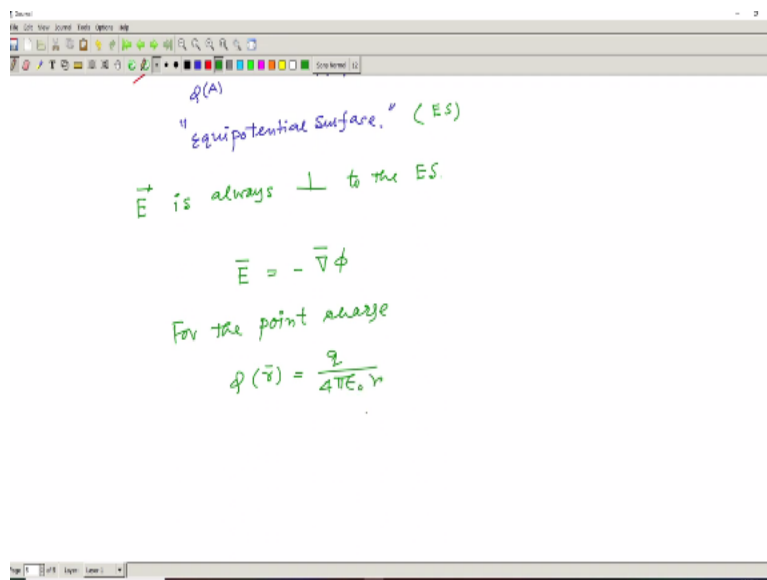 Journal
File Edit View Journal Tools Options Help
Sans Normal 12
φ(A)
"Equipotential Surface." (ES)
E⃗ is always ⊥ to the ES.
E̅ = - ∇̅ φ
For the point charge
φ(r̅) = q / 4πε₀ r
Page 5 of 5 Layer: Layer 1